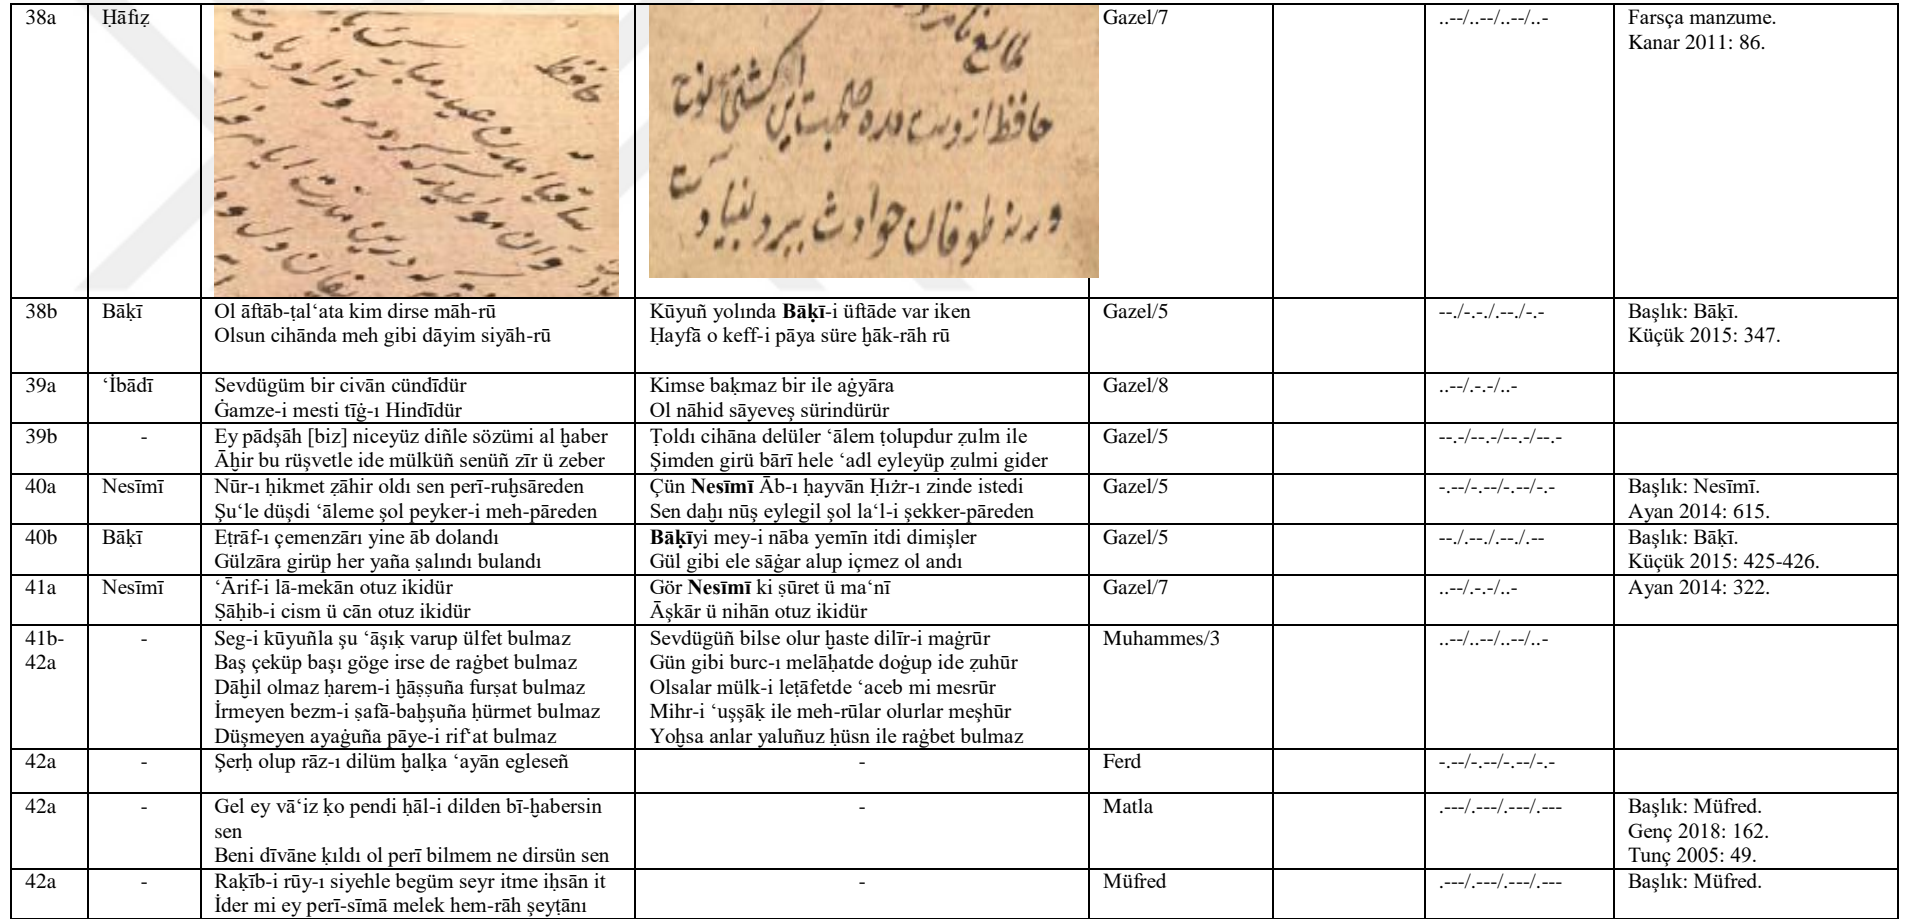 38a
Ḥāfıẓ
حافظ
ساقیا آمدن عید مبارک بادت
وآن مواعید که کردی مرو از یادت
حافظ از دست مده صحبت این کشتی نوح
ورنه طوفان حوادث ببرد بنیادت
Gazel/7
..--/..--/..--/..-
Farsça manzume.
Kanar 2011: 86.
38b
Bāḳī
Ol āftāb-ṭal‘ata kim dirse māh-rū
Olsun cihānda meh gibi dāyim siyāh-rū
Kūyuñ yolında Bāḳī-i üftāde var iken
Ḥayfā o keff-i pāya süre ḫāk-rāh rū
Gazel/5
--./-.-./.--/-.-
Başlık: Bāḳī.
Küçük 2015: 347.
39a
‘İbādī
Sevdügüm bir civān cündīdür
Ġamze-i mesti tīġ-ı Hindīdür
Kimse baḳmaz bir ile aġyāra
Ol nāhid sāyeveş sürindürür
Gazel/8
..--/.-.-/..-
39b
-
Ey pādşāh [biz] niceyüz diñle sözümi al ḫaber
Āḫir bu rüşvetle ide mülküñ senüñ zīr ü zeber
Ṭoldı cihāna delüler ‘ālem ṭolupdur ẓulm ile
Şimden girü bārī hele ‘adl eyleyüp ẓulmi gider
Gazel/5
--.-/--.-/--.-/--.-
40a
Nesīmī
Nūr-ı ḥikmet ẓāhir oldı sen perī-ruḫsāreden
Şu‘le düşdi ‘āleme şol peyker-i meh-pāreden
Çün Nesīmī Āb-ı ḥayvān Ḥıżr-ı zinde istedi
Sen daḫı nūş eylegil şol la‘l-i şekker-pāreden
Gazel/5
-.--/-.--/-.--/-.-
Başlık: Nesīmī.
Ayan 2014: 615.
40b
Bāḳī
Eṭrāf-ı çemenzārı yine āb dolandı
Gülzāra girüp her yaña ṣalındı bulandı
Bāḳīyi mey-i nāba yemīn itdi dimişler
Gül gibi ele sāġar alup içmez ol andı
Gazel/5
--./.--./.--./.--
Başlık: Bāḳī.
Küçük 2015: 425-426.
41a
Nesīmī
‘Ārif-i lā-mekān otuz ikidür
Ṣāḥib-i cism ü cān otuz ikidür
Gör Nesīmī ki ṣūret ü ma‘nī
Āşkār ü nihān otuz ikidür
Gazel/7
..--/.-.-/..-
Ayan 2014: 322.
41b-
42a
-
Seg-i kūyuñla şu ‘āşıḳ varup ülfet bulmaz
Baş çeküp başı göge irse de raġbet bulmaz
Dāḫil olmaz ḥarem-i ḫāṣṣuña furṣat bulmaz
İrmeyen bezm-i ṣafā-baḫşuña ḥürmet bulmaz
Düşmeyen ayaġuña pāye-i rif‘at bulmaz
Sevdügüñ bilse olur ḫaste dilīr-i maġrūr
Gün gibi burc-ı melāḥatde doġup ide ẓuhūr
Olsalar mülk-i leṭāfetde ‘aceb mi mesrūr
Mihr-i ‘uşşāḳ ile meh-rūlar olurlar meşhūr
Yoḫsa anlar yaluñuz ḥüsn ile raġbet bulmaz
Muhammes/3
..--/..--/..--/..-
42a
-
Şerḥ olup rāz-ı dilüm ḫalḳa ‘ayān egleseñ
-
Ferd
-.--/-.--/-.--/-.-
42a
-
Gel ey vā‘iz ḳo pendi ḥāl-i dilden bī-ḫabersin
sen
Beni dīvāne ḳıldı ol perī bilmem ne dirsün sen
-
Matla
.---/.---/.---/.---
Başlık: Müfred.
Genç 2018: 162.
Tunç 2005: 49.
42a
-
Raḳīb-i rūy-ı siyehle begüm seyr itme iḥsān it
İder mi ey perī-sīmā melek hem-rāh şeyṭānı
-
Müfred
.---/.---/.---/.---
Başlık: Müfred.